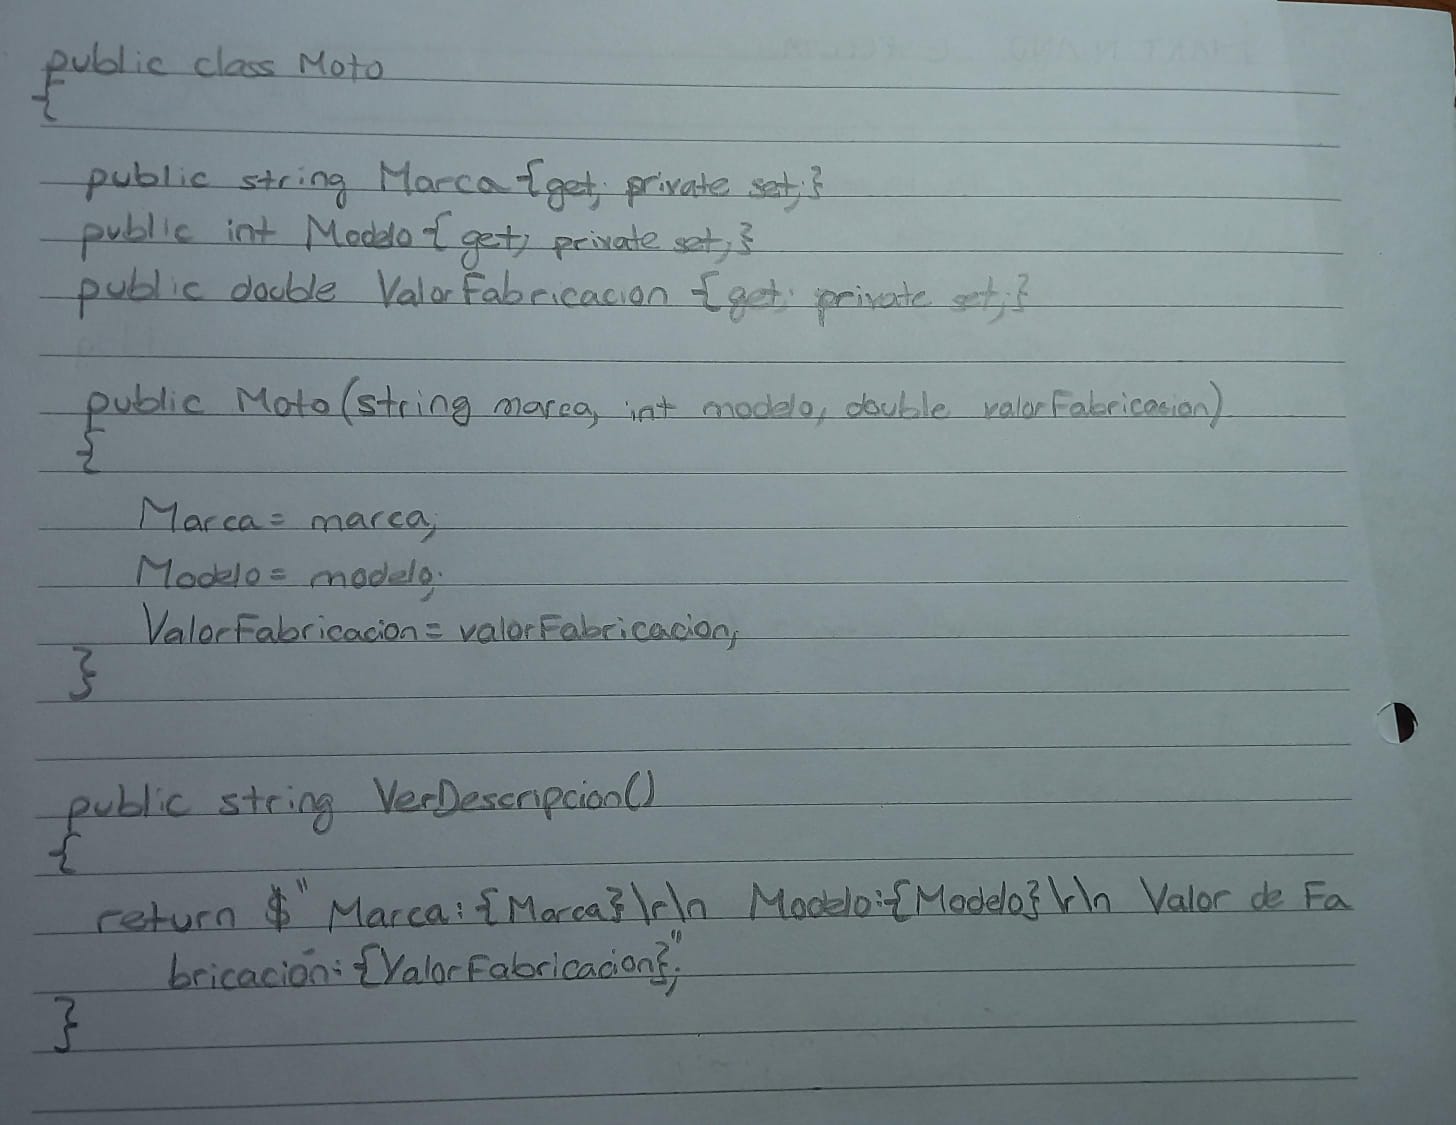 public class Moto
{
public string Marca {get; private set;}
public int Modelo { get; private set; }
public double ValorFabricacion { get; private set; }
public Moto (string marca, int modelo, double valorFabricacion)
{
Marca = marca;
Modelo = modelo;
ValorFabricacion = valorFabricacion;
}
public string VerDescripcion()
{
return $" Marca: {Marca} \r\n Modelo: {Modelo} \r\n Valor de Fa
bricación: {ValorFabricacion}";
}